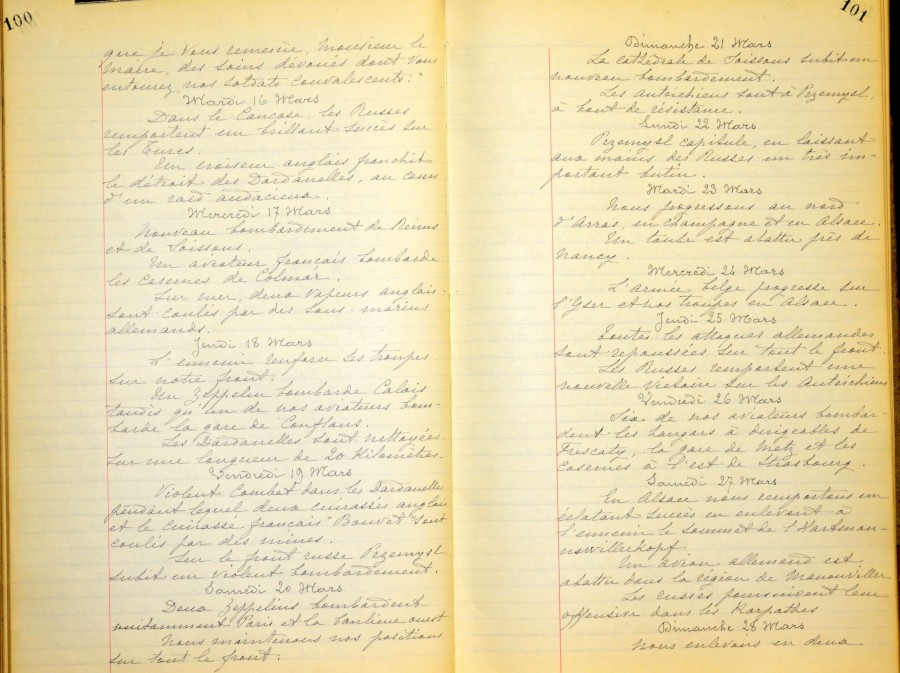 100
que je vous remercie, Monsieur le
Maire, des soins dévoués dont vous
entourez nos soldats convalescents."
Mardi 16 Mars
Dans le Caucase, les Russes
remportent un brillant succès sur
les Turcs.
Un croiseur anglais franchit
le détroit des Dardanelles, au cours
d'un raid audacieux.
Mercredi 17 Mars
Nouveau bombardement de Reims
et de Soissons.
Un aviateur français bombarde
les casernes de Colmar.
Sur mer, deux vapeurs anglais
sont coulés par des sous-marins
allemands.
Jeudi 18 Mars
L'ennemi renforce ses troupes
sur notre front.
Un Zeppelin bombarde Calais
tandis qu'un de nos aviateurs bom-
barde la gare de Conflans.
Les Dardanelles sont nettoyées
sur une longueur de 20 Kilomètres.
Vendredi 19 Mars
Violent combat dans les Dardanelles
pendant lequel deux cuirassés anglais
et le cuirassé français "Bouvet" sont
coulés par des mines.
Sur le front russe Pezemysl
subit un violent bombardement.
Samedi 20 Mars
Deux Zeppelins bombardent
nuitamment Paris et la banlieue ouest
Nous maintenons nos positions
sur tout le front.
101
Dimanche 21 Mars
La cathédrale de Soissons subit un
nouveau bombardement.
Les Autrichiens sont à Pezemysl,
à bout de résistance.
Lundi 22 Mars
Pezemysl capitule, en laissant
aux mains des Russes un très im-
portant butin.
Mardi 23 Mars
Nous progressons au nord
d'Arras, en Champagne et en Alsace.
Un taube est abattu près de
Nancy.
Mercredi 24 Mars
L'Armée belge progresse sur
l'Yser et nos troupes en Alsace.
Jeudi 25 Mars
Toutes les attaques allemandes
sont repoussées sur tout le front.
Les Russes remportent une
nouvelle victoire sur les Autrichiens
Vendredi 26 Mars
Six de nos aviateurs bombar-
dent les hangars à dirigeables de
Frescaty, la gare de Metz et les
casernes à l'est de Strasbourg.
Samedi 27 Mars
En Alsace nous remportons un
éclatant succès en enlevant à
l'ennemi le sommet de l'Hartman-
nswillerkopf.
Un avion allemand est
abattu dans la région de Manonviller
Les russes poursuivent leur
offensive dans les Karpathes
Dimanche 28 Mars
Nous enlevons en deux